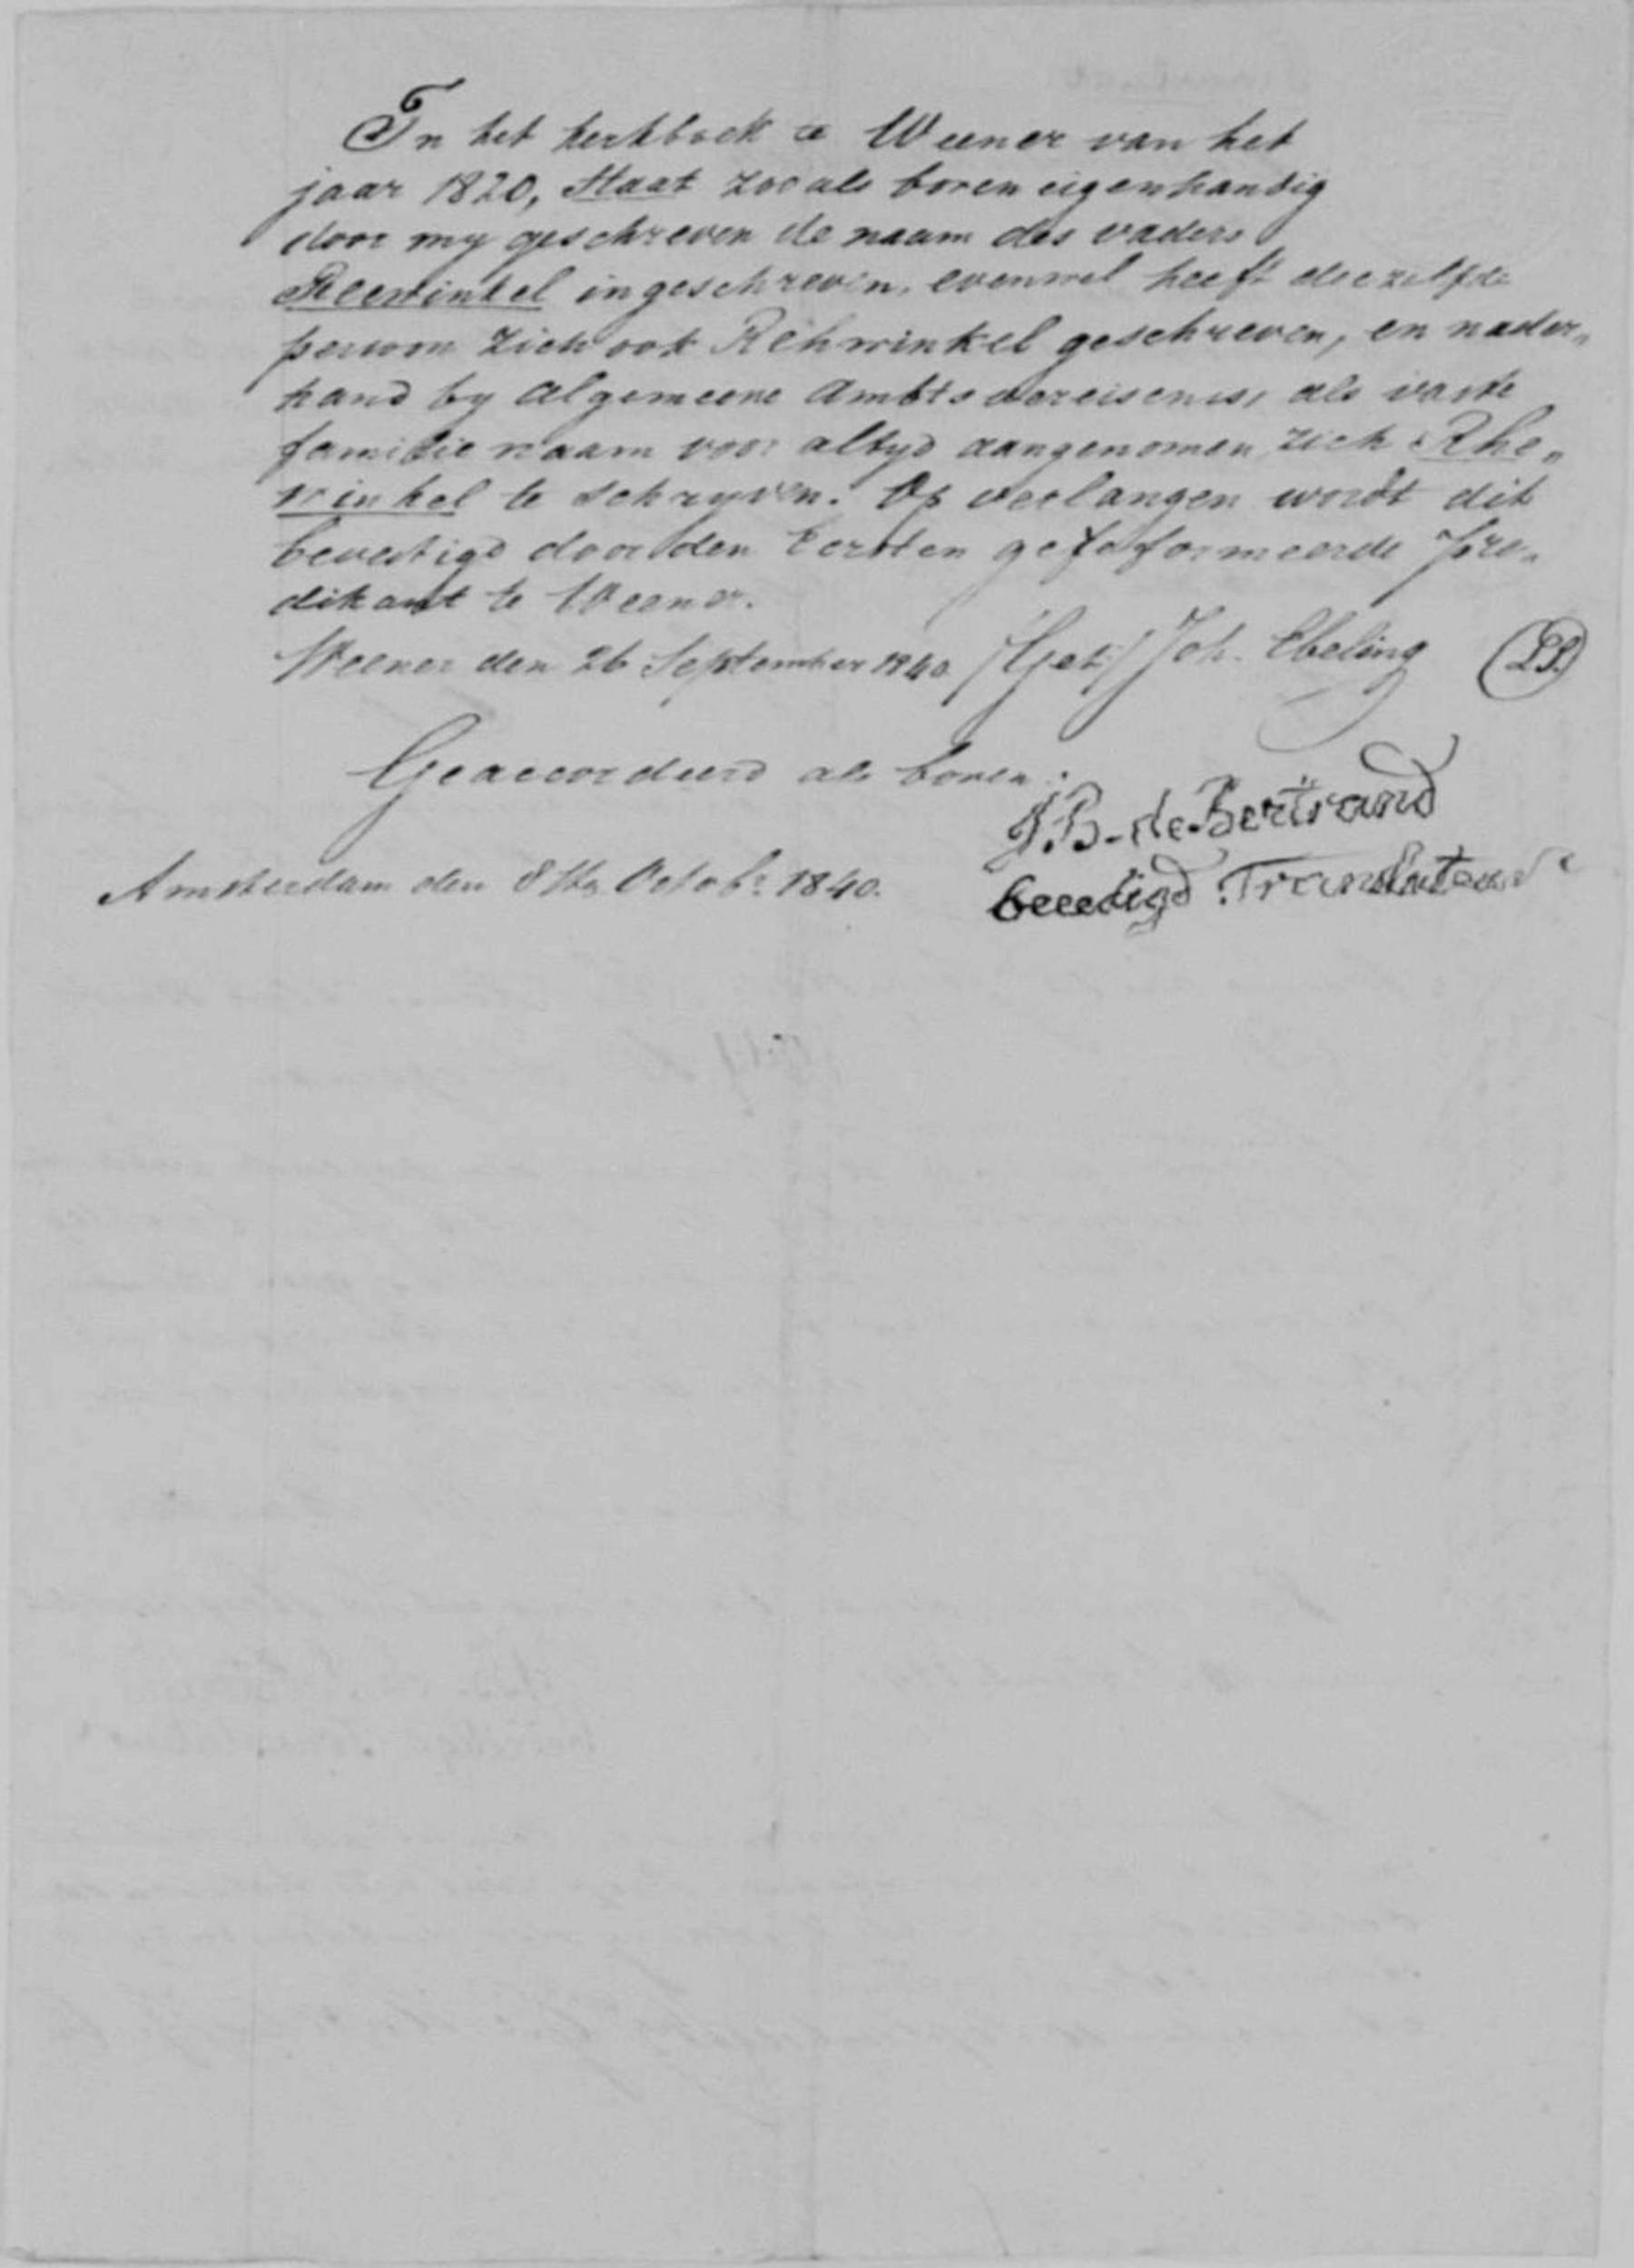 In het kerkboek te Weener van het
jaar 1820, staat zooals boven eigenhandig
door my geschreven de naam des vaders
Reewinkel ingeschreven, evenwel heeft diezelfde
persoon zich ook Rehwinkel geschreven, en nader„
hand by algemeene Ambts vereisenis, als vaste
familie naam voor altyd aangenomen zich Rhe„
winkel te schryven. Op verlangen wordt dit
bevestigd door den Eersten gereformeerde Pre„
dikant te Weener.
Weener den 26 September 1840 /Get:/ Joh. Ebeling (LS.)
Geaccordeerd als boven.
J.B. de Bertrand
Amsterdam den 8ste Octobr 1840.
beeedigd Translateur